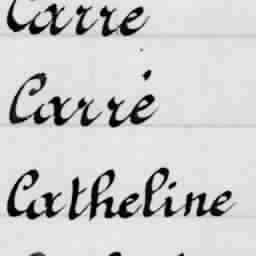 Carre
Carré
Catheline